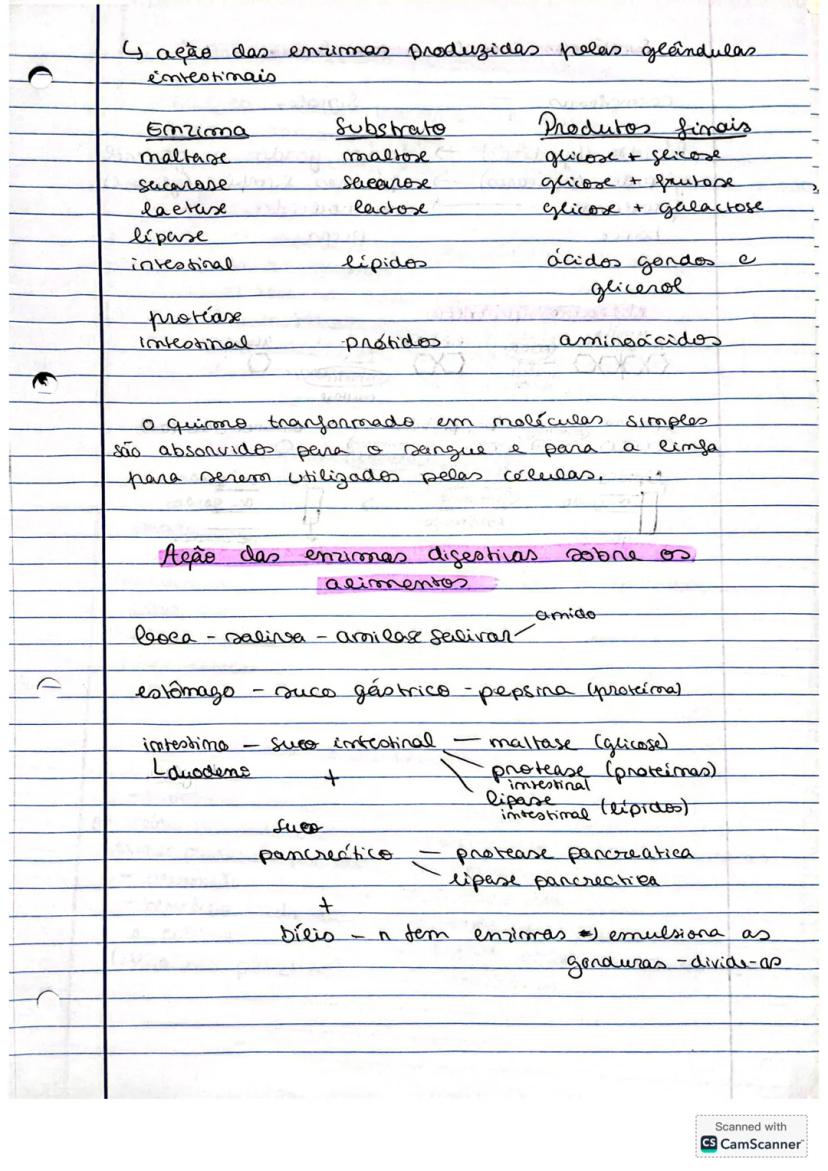 ↳ ação das enzimas produzidas pelas glândulas
intestinais
Enzima Substrato Produtos finais
maltase maltose glicose + glicose
sacarase sacarose glicose + frutose
lactase lactose glicose + galactose
lípase
intestinal lípidos ácidos gordos e
glicerol
protéase
intestinal prótidos aminoácidos
o quimo tranformado em moléculas simples
são absorvidos para o sangue e para a linfa
para serem utilizados pelas células.
Ação das enzimas digestivas sobre os
alimentos
amido
boca - saliva - amilase salivar
estômago - suco gástrico - pepsina (proteína)
intestino - suco intestinal - maltase (glicose)
duodeno + protease (proteínas)
intestinal
lipase (lípidos)
intestinal
suco
pancreático - protease pancreatica
lipase pancreatica
+
bílis - n tem enzimas => emulsiona as
gorduras - divide-as
Scanned with
CS CamScanner